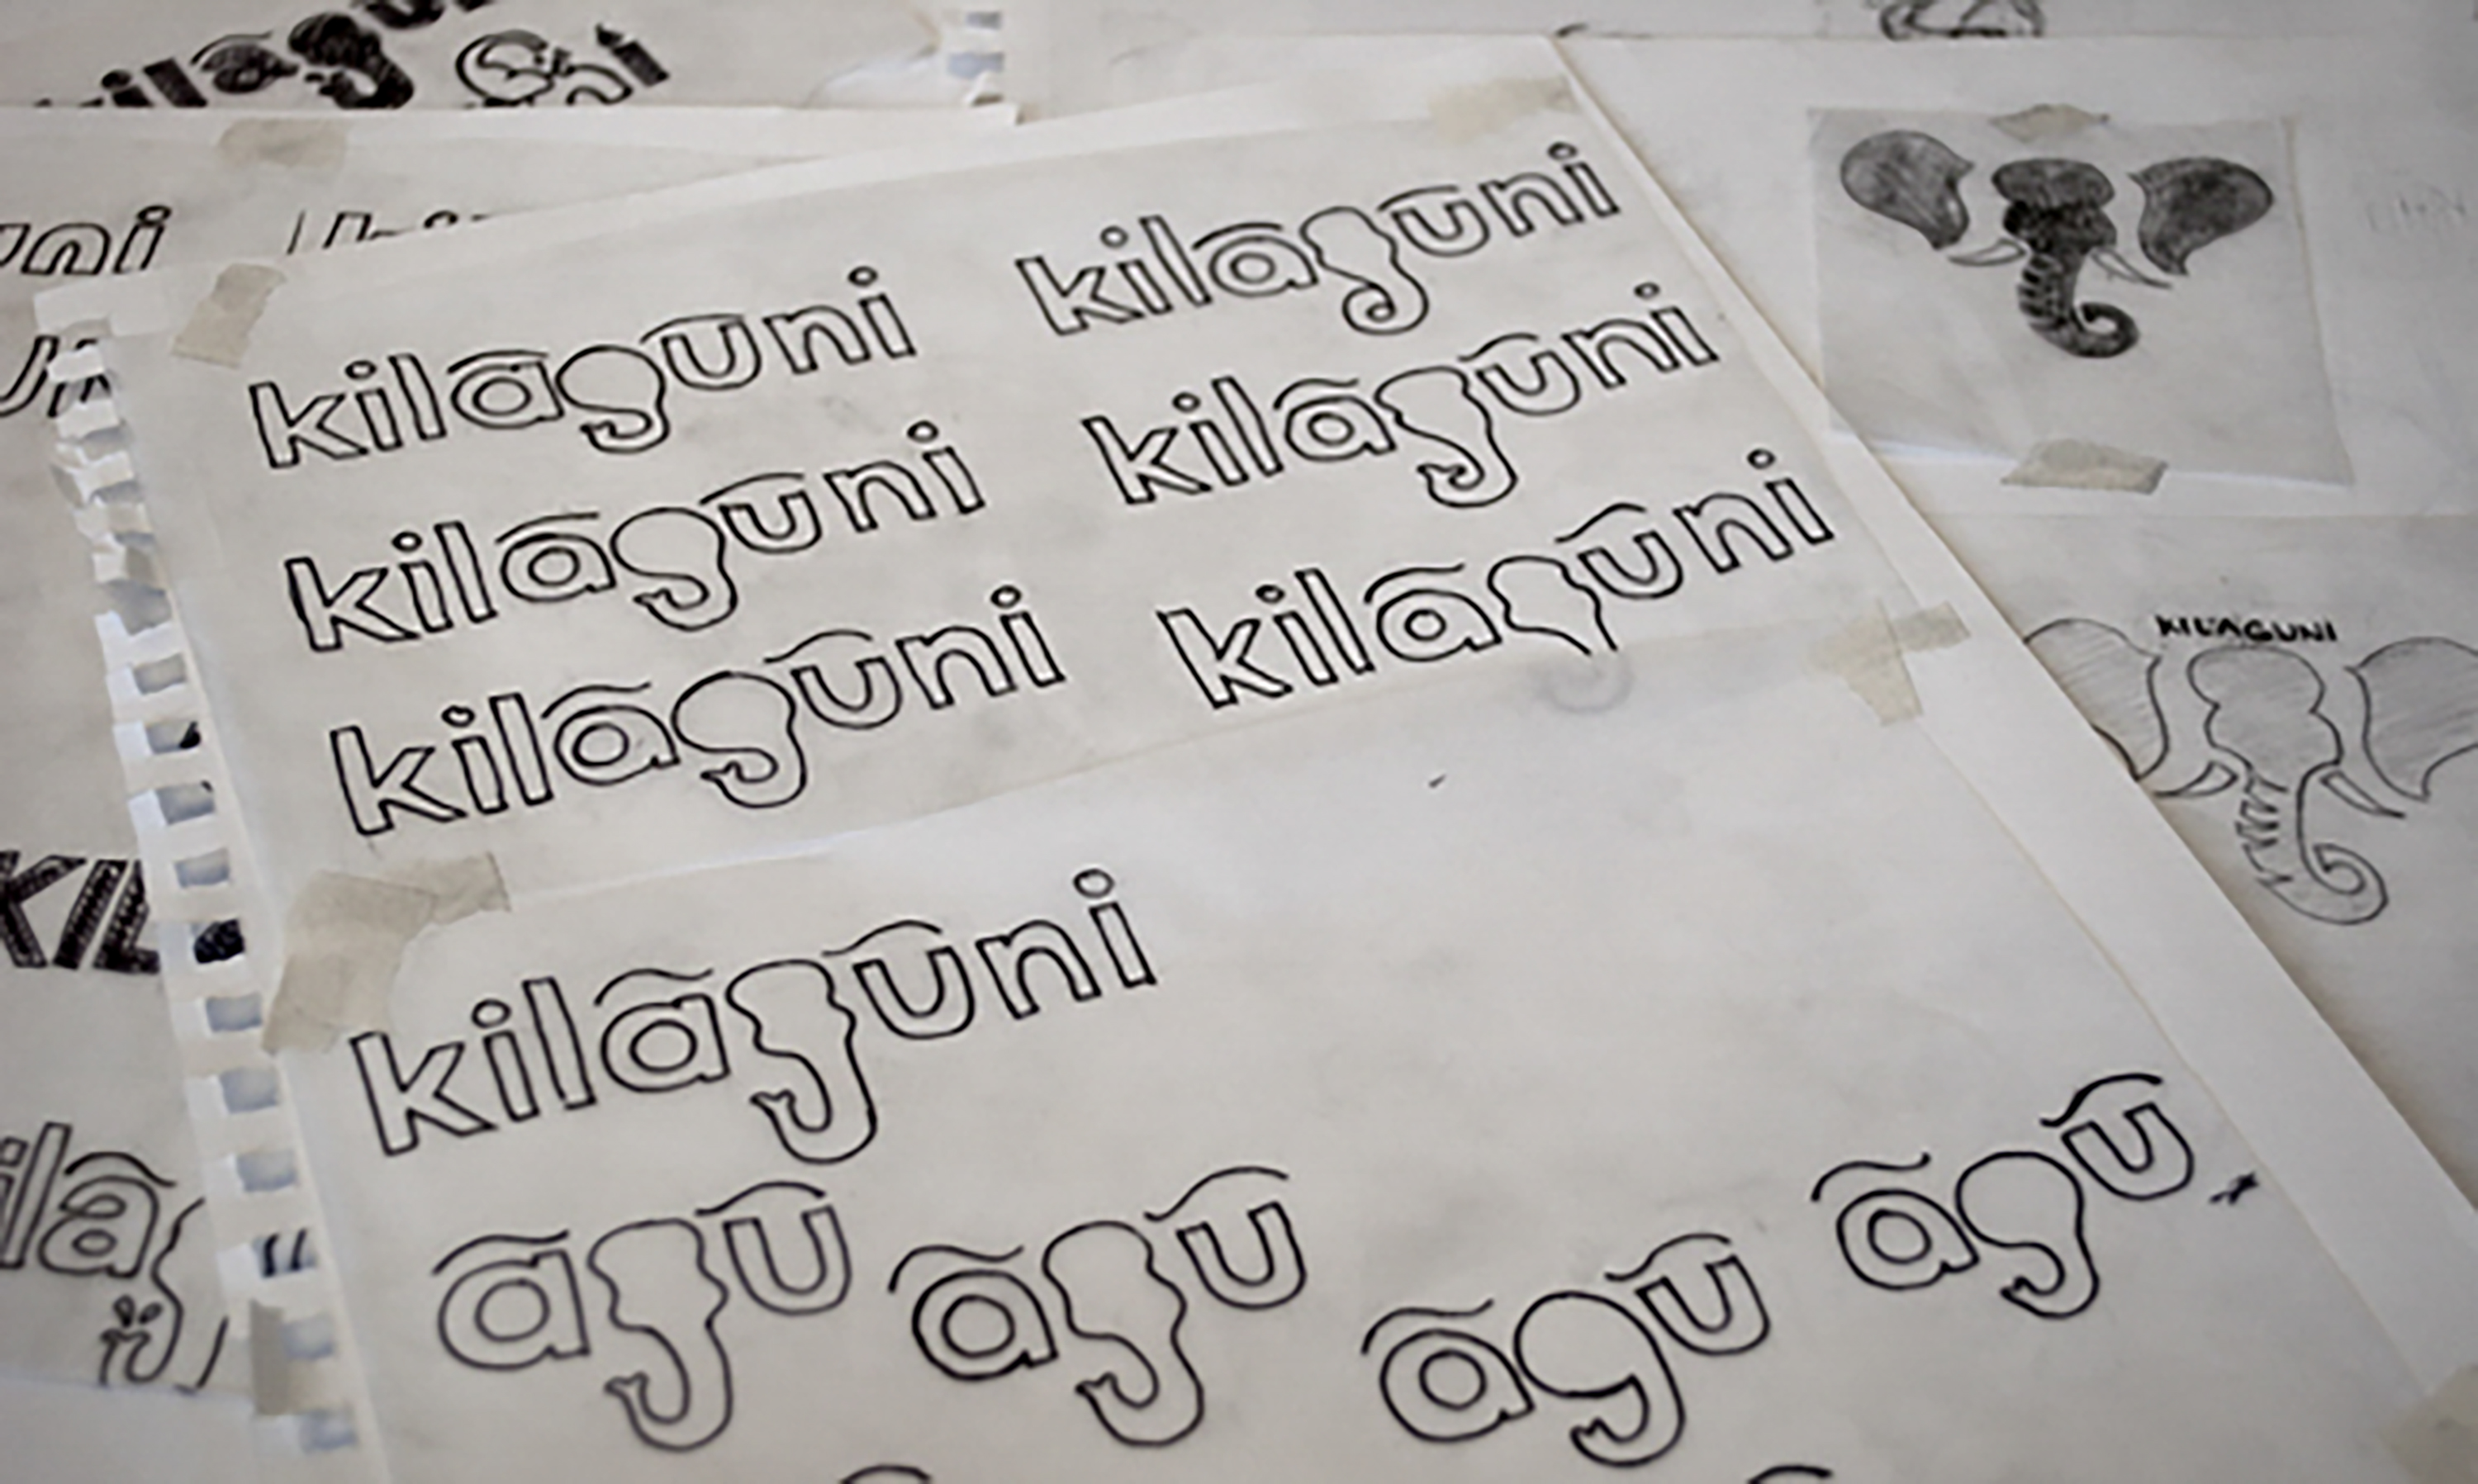 kilaguni
uni
kilaguni kilaguni
kilaguni kilaguni
kilaguni kilaguni
KILAGUNI
KIL
kilaguni
kila
agu agu agu agu